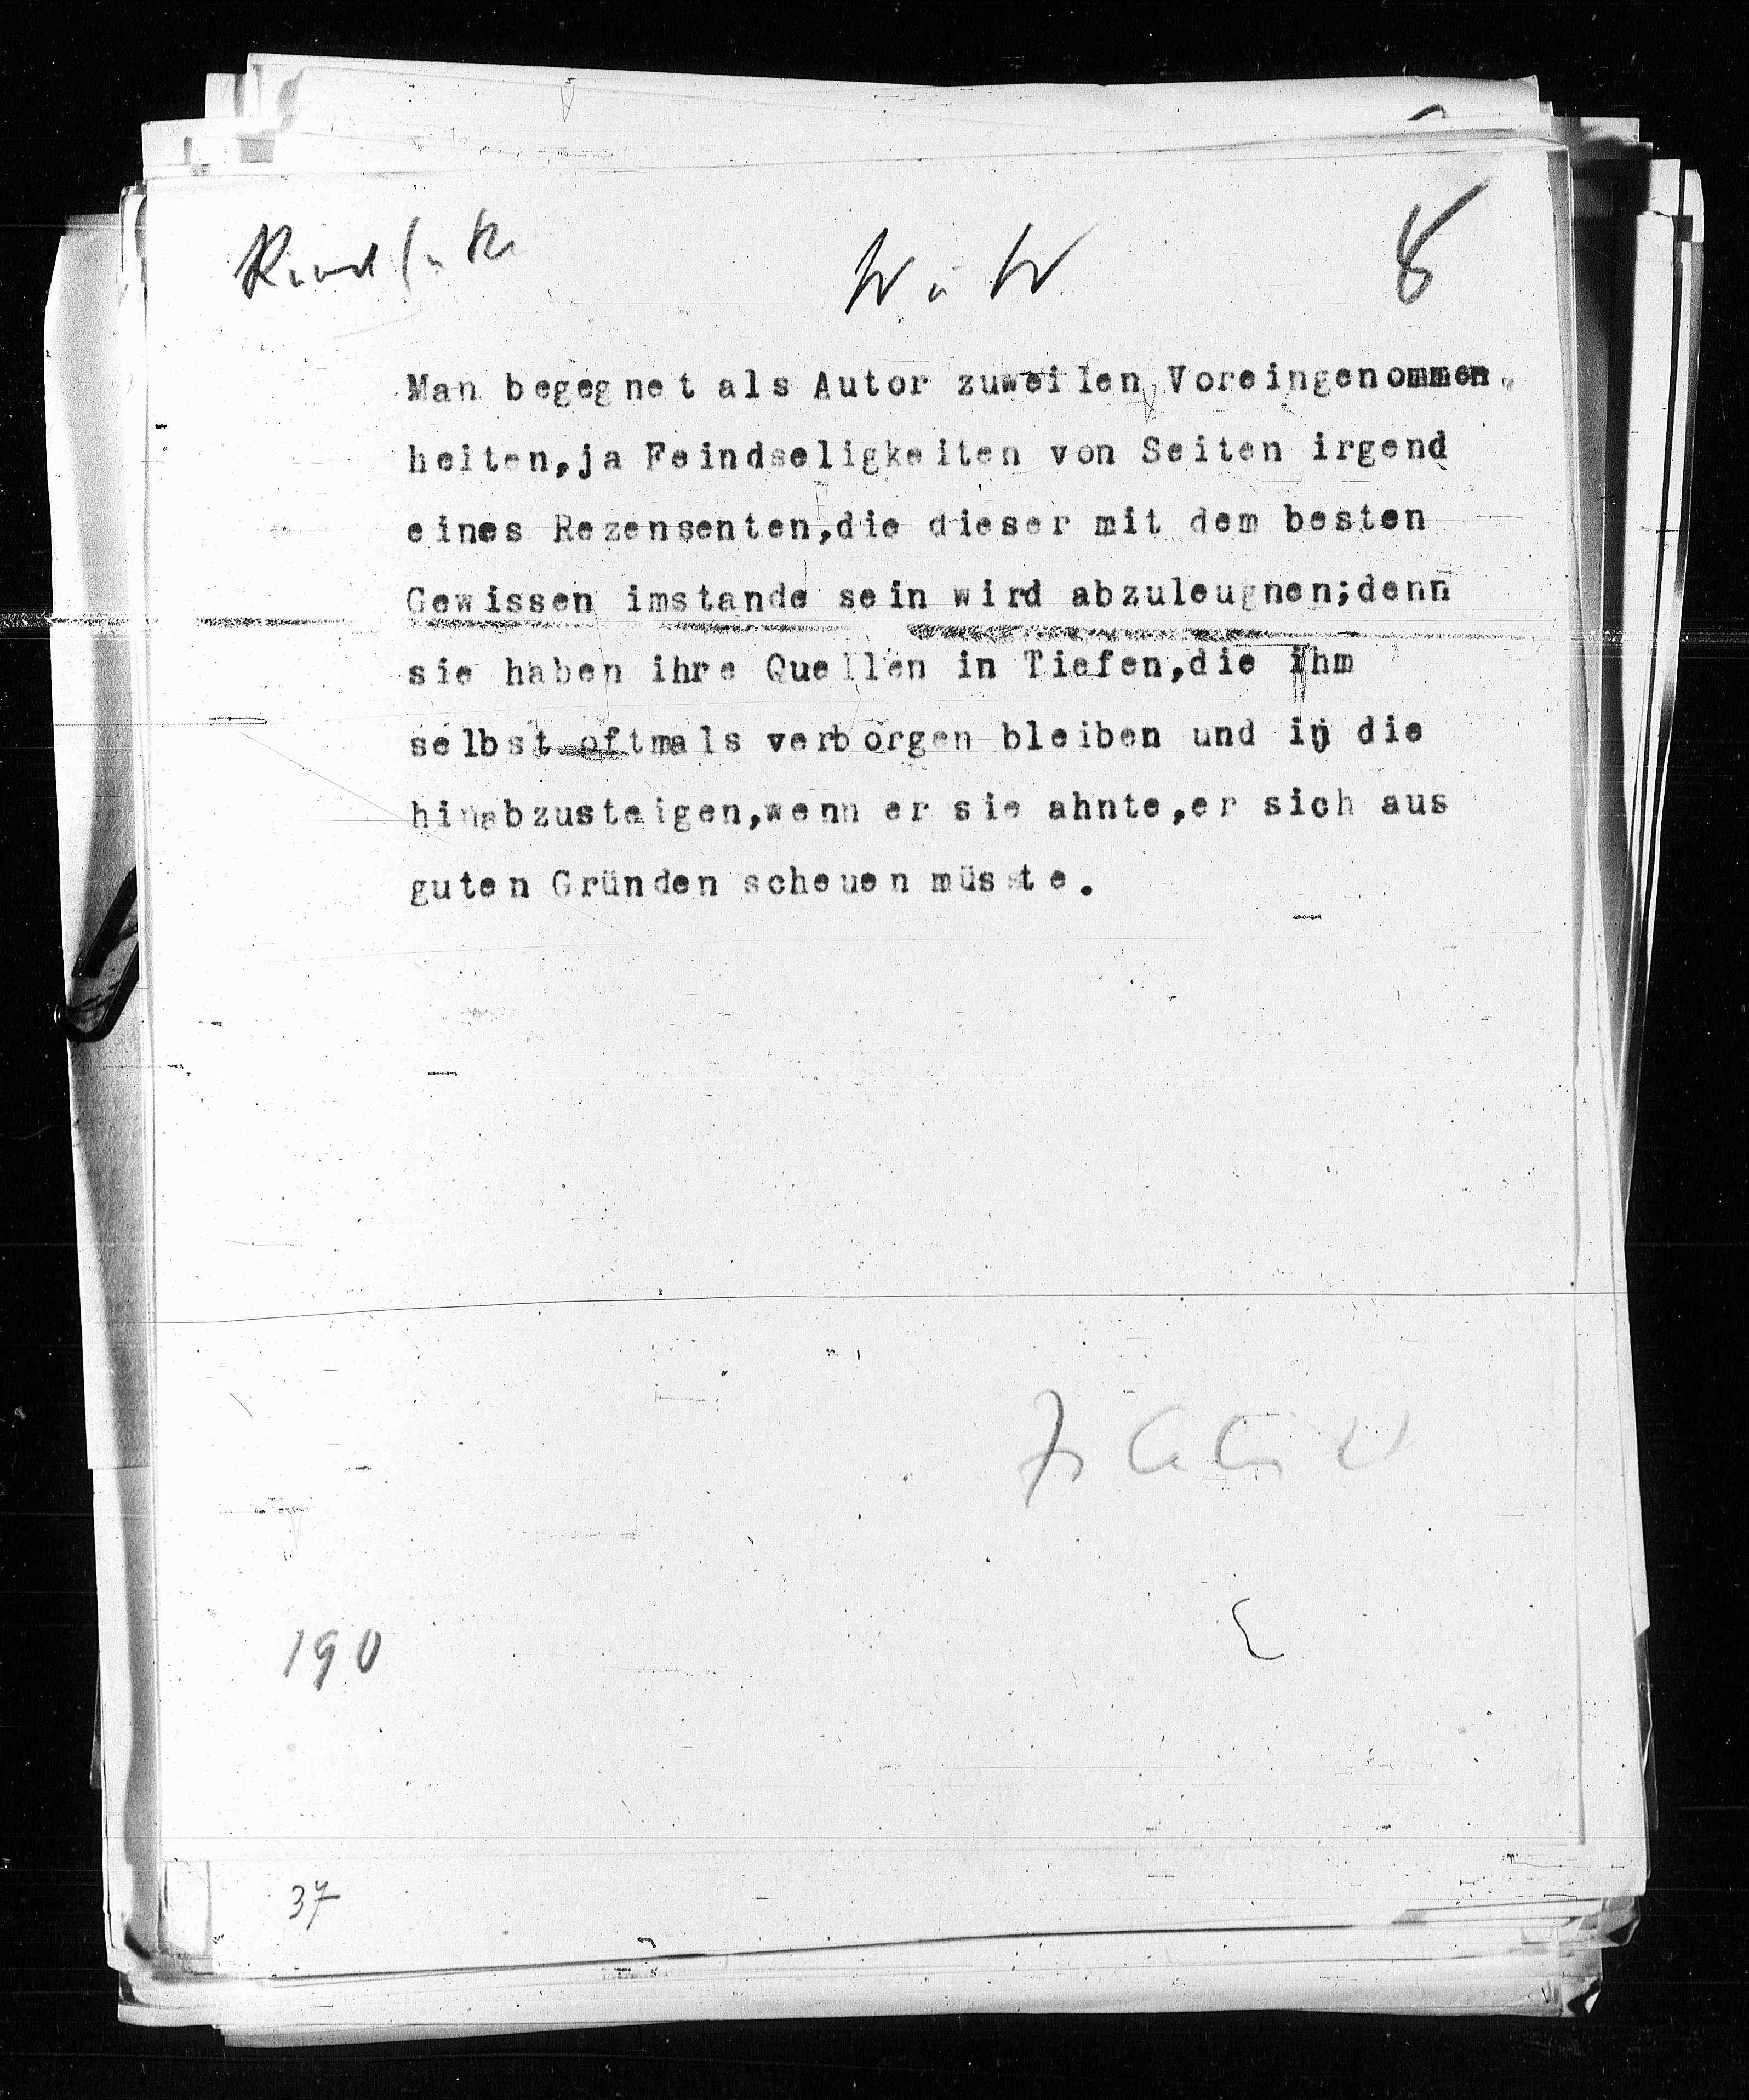 8
Man begegnet als Autor zuweilen Voreingenommen-
heiten,ja Feindseligkeiten von Seiten irgend
eines Rezensenten,die dieser mit dem besten
Gewissen imstande sein wird abzuleugnen;denn
sie haben ihre Quellen in Tiefen,die ihm
selbst oftmals verborgen bleiben und in die
hinabzusteigen,wenn er sie ahnte,er sich aus
guten Gründen scheuen müsste.
190
37